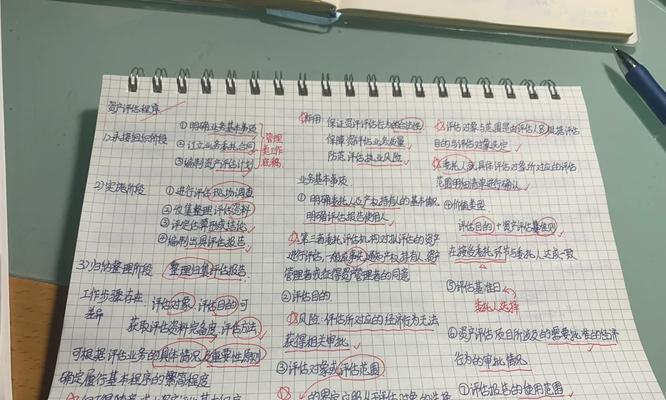 资产评估程序
1)承接组织阶段
①明确业务基本事项
②订立业务委托合同
③编制资产评估计划
管理
类工作
底稿
2)实施阶段
①进行评估现场调查
②收集整理评估资料
③评定估算形成结论
④编制出具评估报告
3)归档整理阶段 整理归集评估报告
工作步骤存在 评估对象、评估目的可
差异 获取评估资料完备度、评估方法
可根据评估业务的具体情况及重要性原则
确定履行基本程序的繁简程度
作用 保证资产评估行为的合法性
保障资产评估业务质量
防范评估执业风险
业务基本事项
①明确委托人及产权持有人的基本情况
明确评估报告使用人
第三者委托评估机构对拟评估的资产
进行评估,一般应事先通知产权持有人、资产
管理者或征得资产管理者的同意
②评估目的
风险:评估所对应的经济行为无法
获得相关审批
③评估对象或评估范围
的界定应服从于评估对象的选择
评估对象与范围是由评估人员根据评估
目的与评估对象选定
委托人就具体评估对象所对应的评估
范围明细清单进行确认
④价值类型
评估目的+资产评估基准则
在接受委托环节与委托人达成一致
⑤评估基准日
委托人选择
⑥资产评估项目所涉及的需要批准的经济
行为的审批情况
⑦评估报告的使用范围